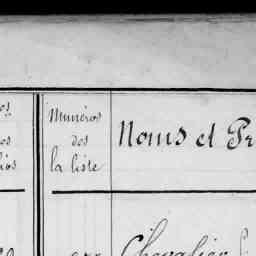 Numéros
des
la liste
Noms et Pr
Chevalier